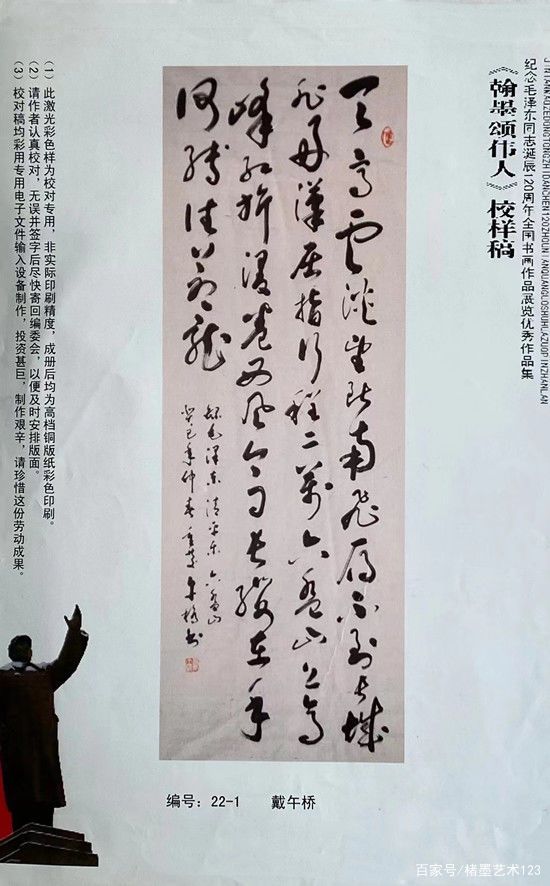 JINIANMAOZEDONGTONGZHIDANCHEN120ZHOUNIANQUANGUOSHUHUAZUOPINZHANLAN
纪念毛泽东同志诞辰120周年全国书画作品展览优秀作品集
《翰墨颂伟人》校样稿
天高云淡望断南飞雁不到长城
非好汉屈指行程二万六盘山上高
峰红旗漫卷西风今日长缨在手
何时缚住苍龙
毛泽东清平乐六盘山
癸巳年仲春午桥书
(1) 此激光彩色样为校对专用，非实际印刷精度，成册后均为高档铜版纸彩色印刷。
(2) 请作者认真校对，无误并签字后尽快寄回编委会，以便及时安排版面。
(3) 校对稿均彩用专用电子文件输入设备制作，投资甚巨，制作艰辛，请珍惜这份劳动成果。
编号：22-1 戴午桥
百家号/楮墨艺术123